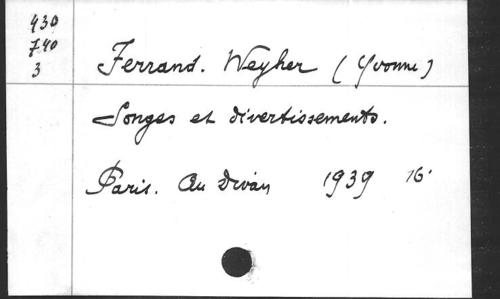 430
740
3
Ferrand. Weyher (Yvonne)
Songes et divertissements.
Paris. Au Divan 1939 16°